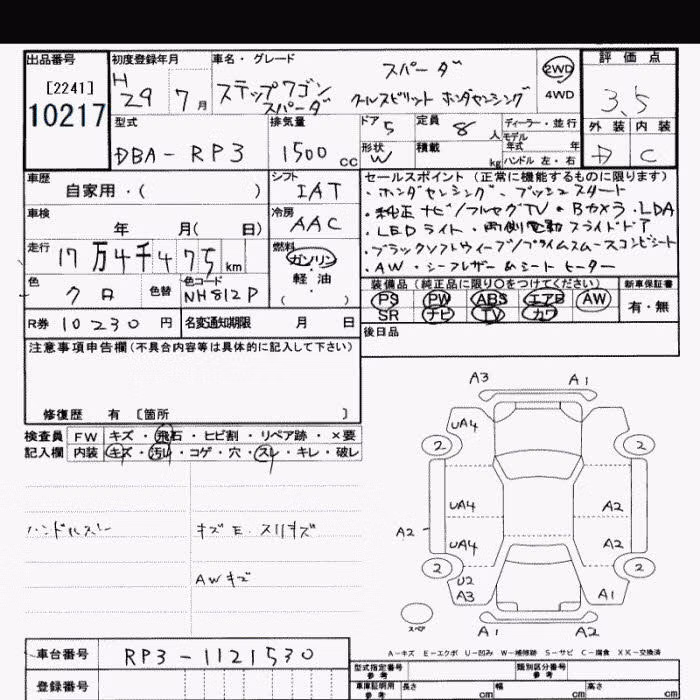 出品番号
[2241]
10217
初度登録年月
H 29 7月
車名・グレード
ステップワゴン スパーダ
スパーダ
クールスピリット ホンダセンシング
2WD
4WD
評価点
3.5
外装 内装
D C
型式
DBA-RP3
排気量
1500 cc
ドア 5
定員 8 人
形状 W
積載 kg
ディーラー・並行
モデル年式 年
ハンドル 左・右
車歴
自家用・( )
シフト
IAT
車検
年 月( 日)
冷房
AAC
走行
17万4千475km
燃料
ガソリン
軽油
( )
色
クロ
色替
色コード
NH812P
R券 10230円
名変通知期限 月 日
セールスポイント(正常に機能するものに限ります)
・ホンダセンシング・プッシュスタート
・純正ナビ/フルセグTV・Bカメラ・LDA
・LEDライト・両側電動スライドドア
・ブラックソフトウィーブ/プライムスムースコンビシート
・AW・シーフレザー&シートヒーター
装備品(純正品に限り○をつけてください)
PS PW ABS エアB AW
SR ナビ TV カワ
新車保証書
有・無
後日品
注意事項申告欄(不具合内容等は具体的に記入して下さい)
修復歴 有 〔箇所 〕
検査員 FW キズ・飛石・ヒビ割・リペア跡・×要
記入欄 内装 キズ・汚れ・コゲ・穴・スレ・キレ・破レ
ハンドルスレ
キズ E・スリキズ
AWキズ
A3 A1
UA4
2 2
UA4 A2
A2
UA4 A2
2 2
U2
A3 A1
スペア
A1 A2
A-キズ E-エクボ U-凹み W-補修跡 S-サビ C-腐食 XX-交換済
車台番号 RP3-1121530
登録番号
型式指定番号 参考
類別区分番号 参考
車庫証明用 参考 長さ cm 幅 cm 高さ cm